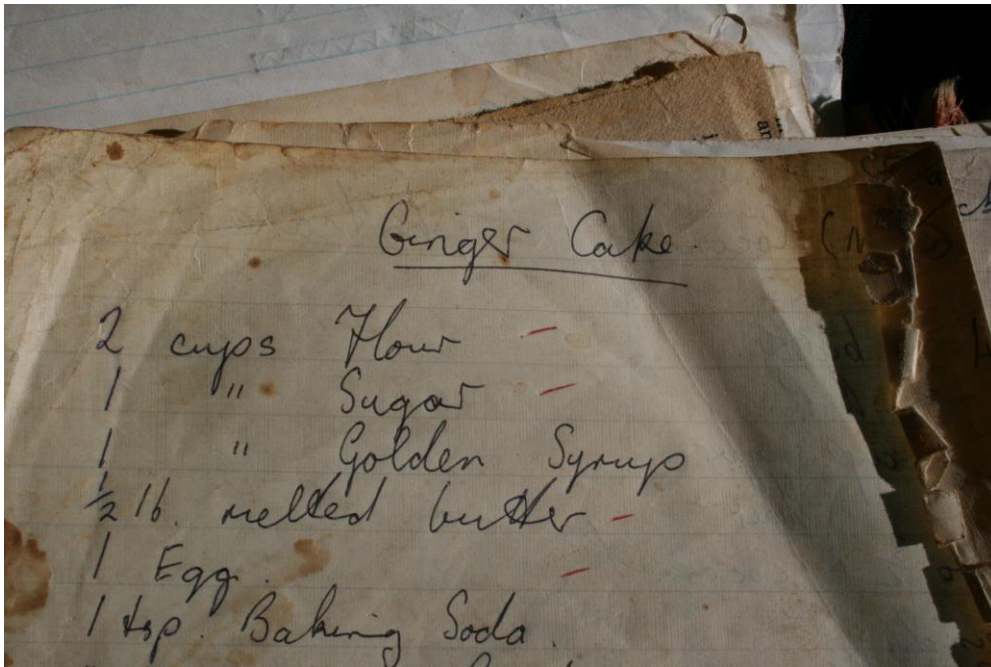 Ginger Cake.
2 cups Flour –
1 " Sugar –
1 " Golden Syrup
½ lb. melted butter –
1 Egg. –
1 tsp. Baking Soda.